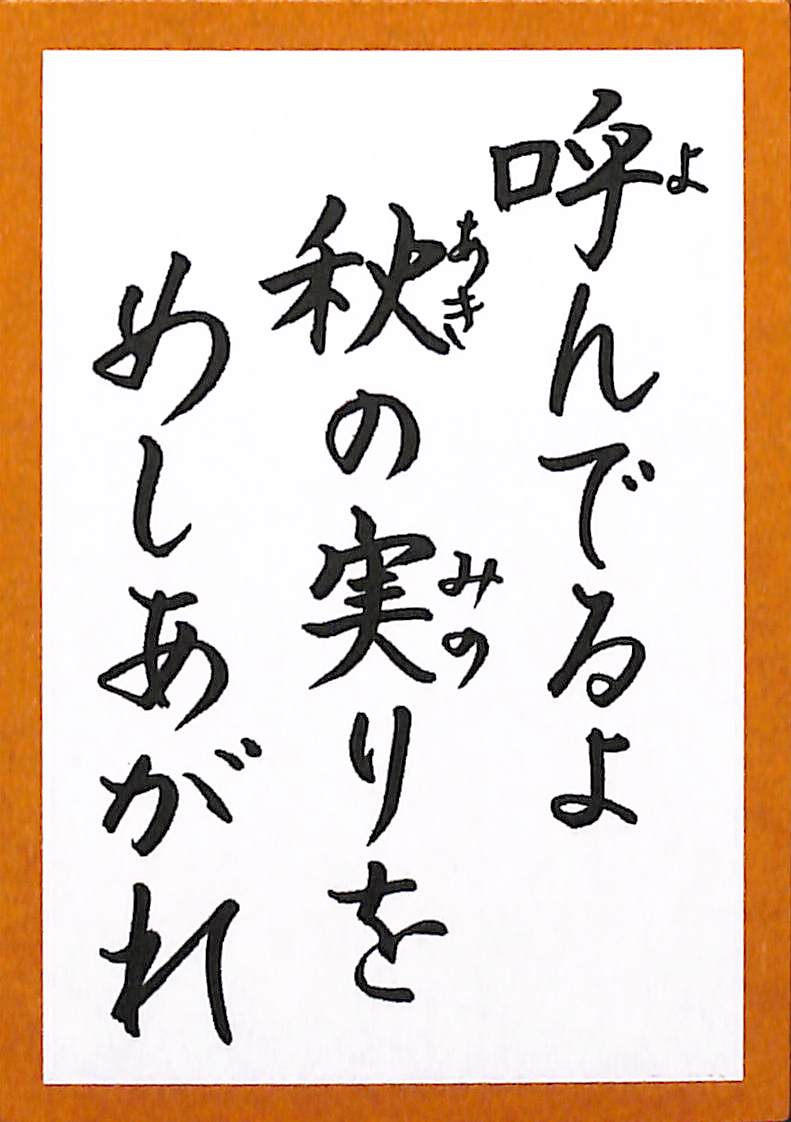 呼んでるよ
秋の実りを
めしあがれ
よ
あき
みの